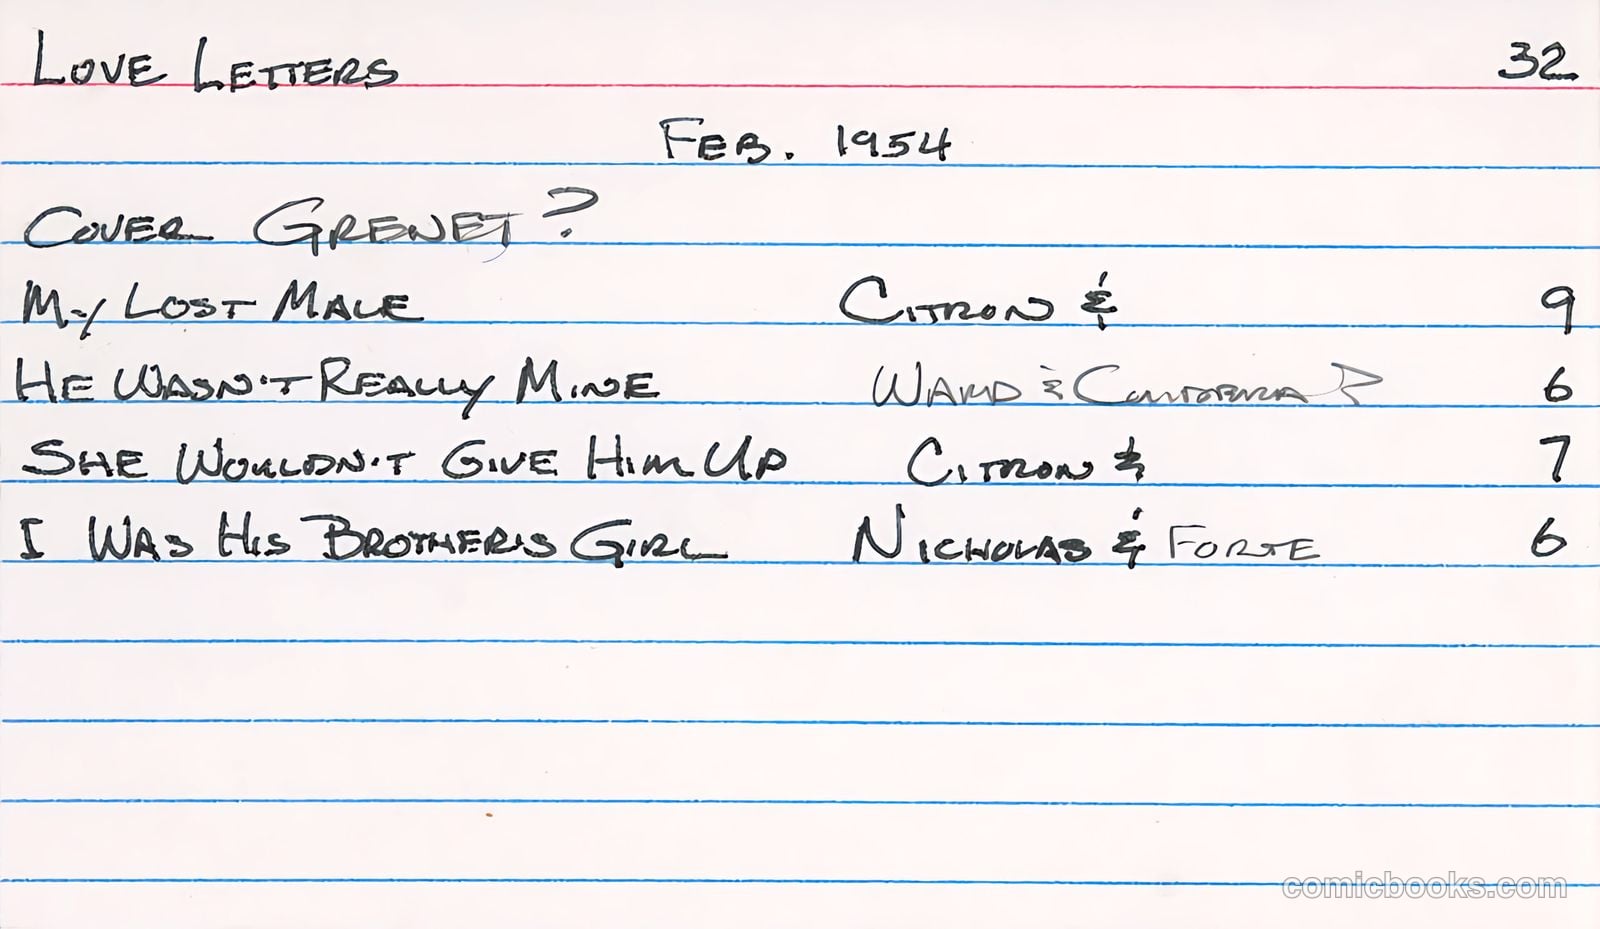 LOVE LETTERS 32
FEB. 1954
COVER GRENET?
MY LOST MALE CITRON & 9
HE WASN'T REALLY MINE WARD & ? 6
SHE WOULDN'T GIVE HIM UP CITRON & 7
I WAS HIS BROTHER'S GIRL NICHOLAS & FORTE 6
comicbooks.com